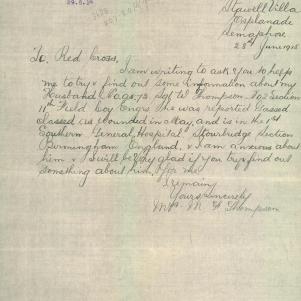 Stawell Villa
Esplanade
Semaphore
28th June 1918
To. Red Cross,
I am writing to ask you to help
me to try & find out some information about my
Husband Thompson No 2 Section
11th Field Coy Engrs. He was reported Gassed
classed as wounded in May, and is in the 1st
Southern General Hospital Stourbridge Section
Birmingham England, & I am anxious about
him & I will be very glad if you try & find out
something about him, for me
I remain
Yours Sincerely
Mrs M Thompson